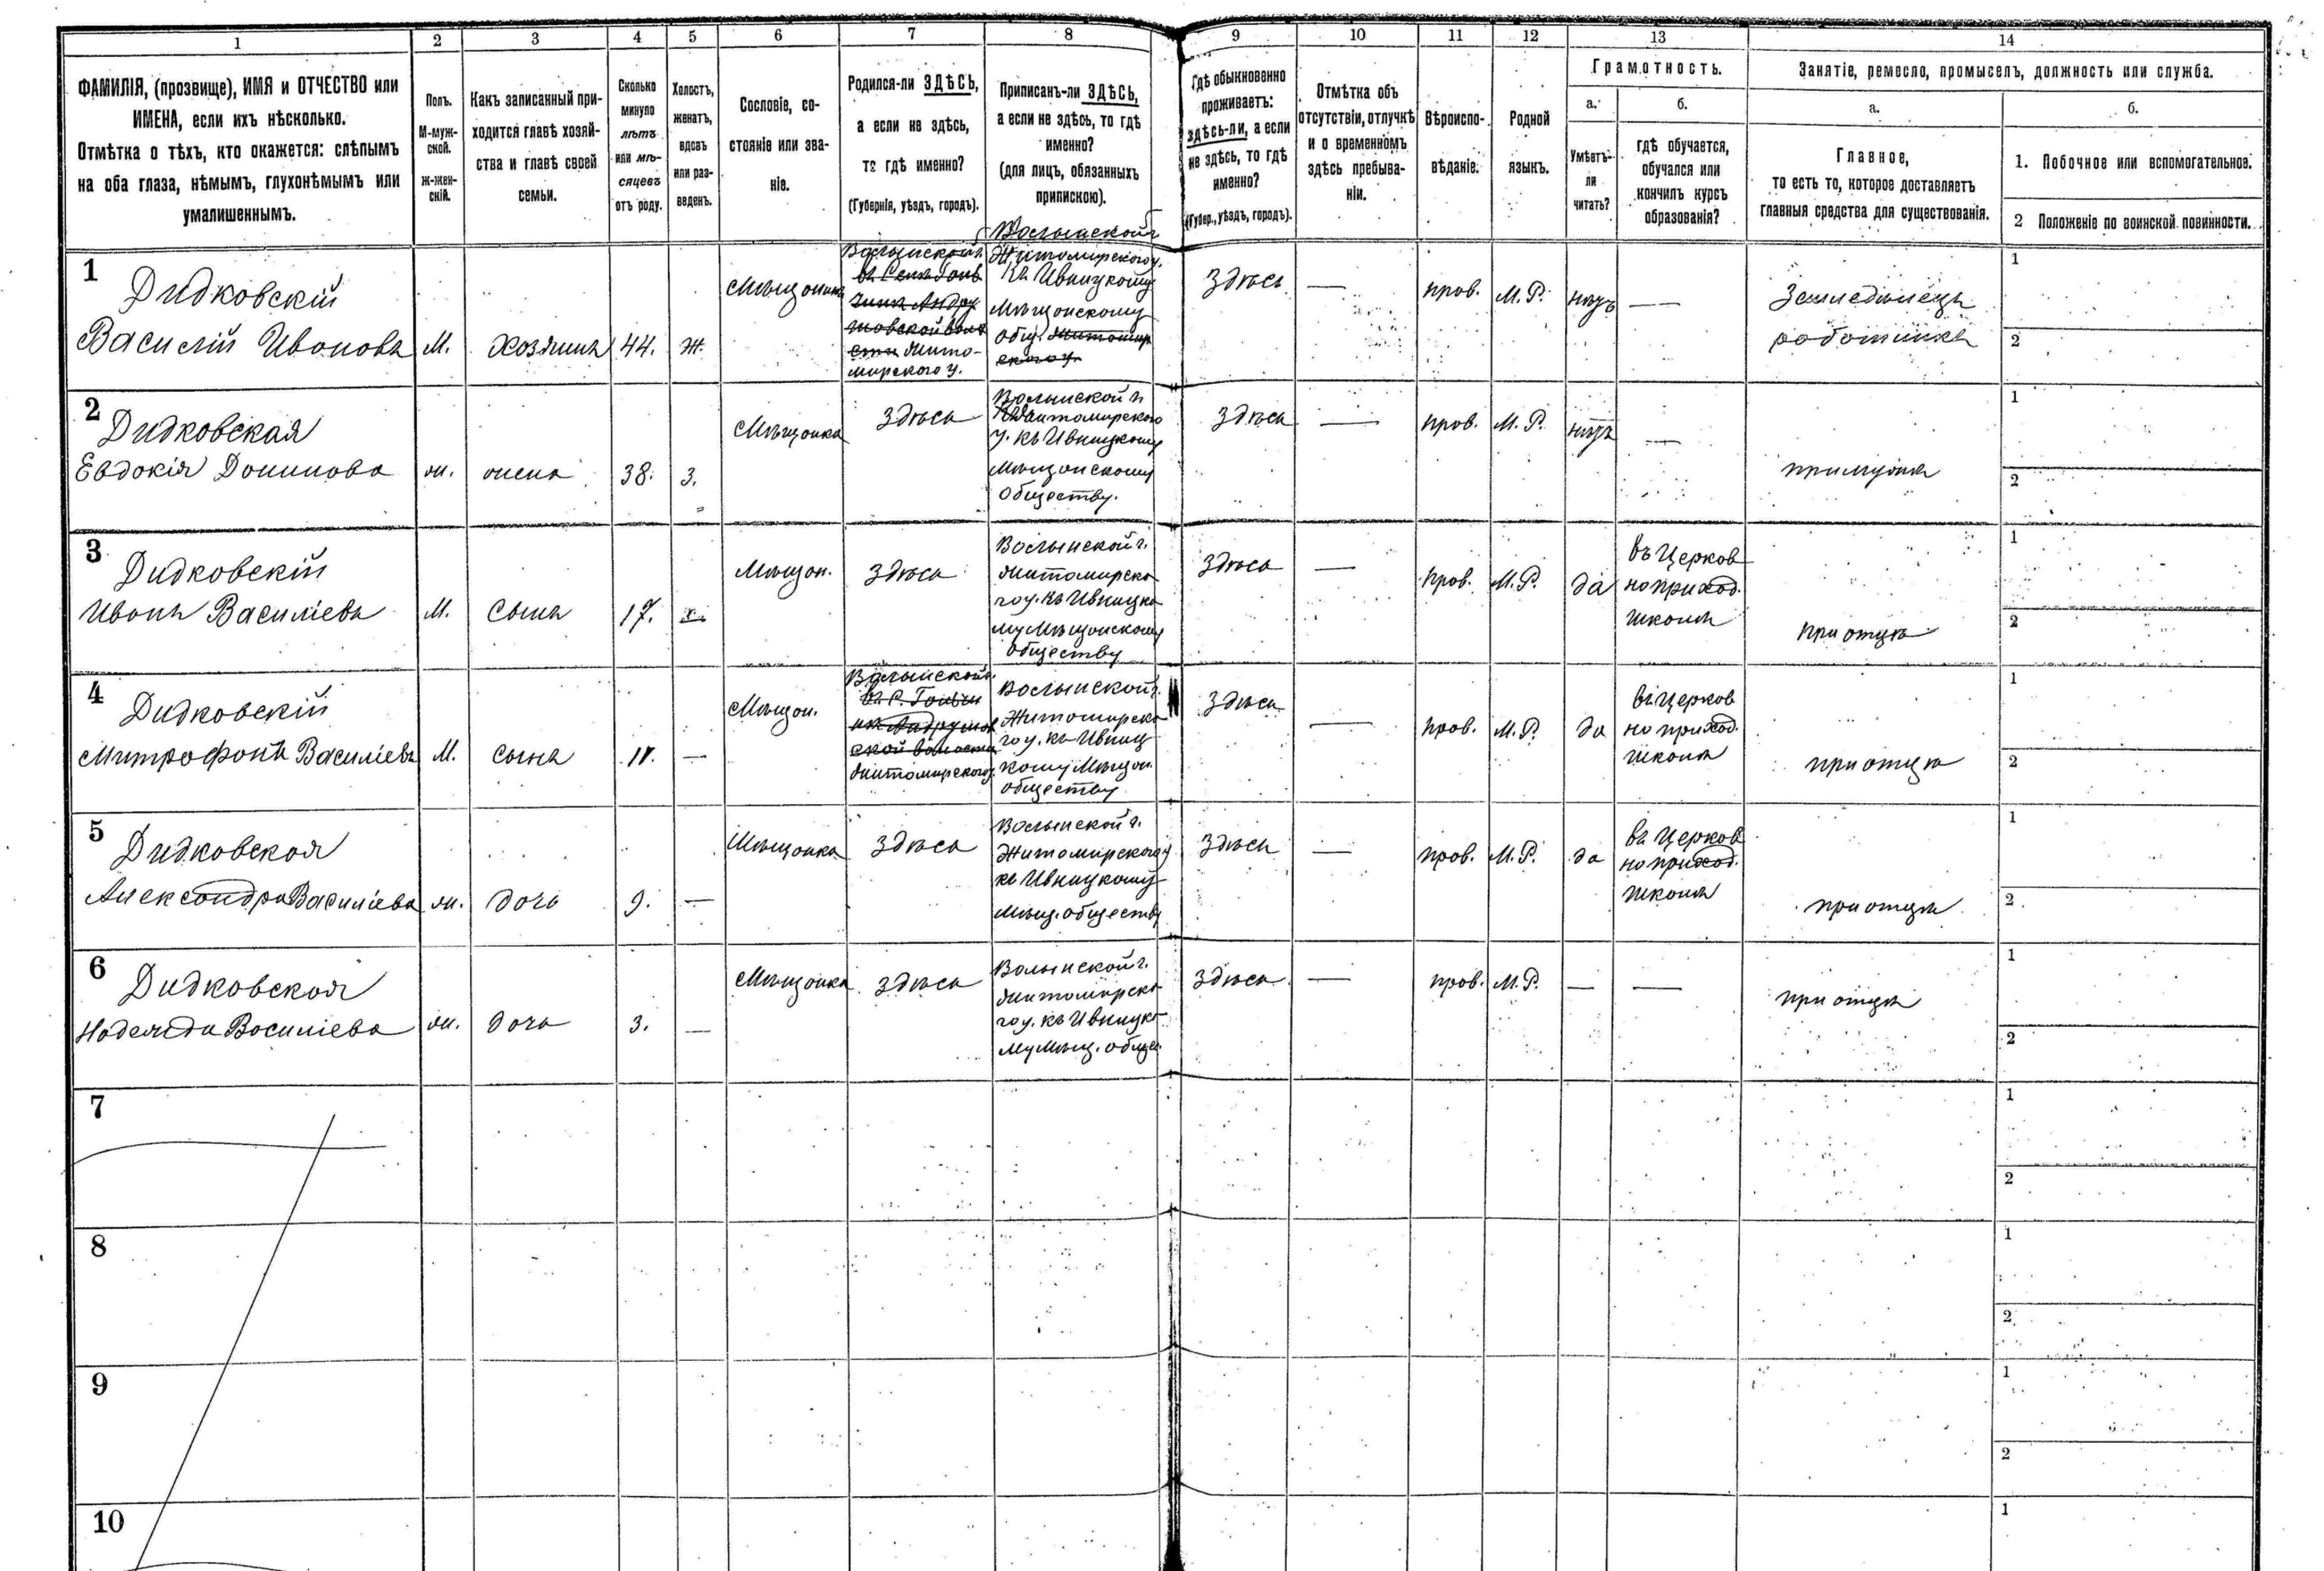 1 2 3 4 5 6 7 8 9 10 11 12 13 14
ФАМИЛІЯ, (прозвище), ИМЯ и ОТЧЕСТВО или
ИМЕНА, если ихъ нѣсколько.
Отмѣтка о тѣхъ, кто окажется: слѣпымъ
на оба глаза, нѣмымъ, глухонѣмымъ или
умалишеннымъ.
Полъ.
М-муж-
ской.
ж-жен-
скій.
Какъ записанный при-
ходится главѣ хозяй-
ства и главѣ своей
семьи.
Сколько
минуло
лѣтъ
или мѣ-
сяцевъ
отъ роду.
Холостъ,
женатъ,
вдовъ
или раз-
веденъ.
Сословіе, со-
стояніе или зва-
ніе.
Родился-ли ЗДѢСЬ,
а если не здѣсь,
то гдѣ именно?
(Губернія, уѣздъ, городъ).
Приписанъ-ли ЗДѢСЬ,
а если не здѣсь, то гдѣ
именно?
(для лицъ, обязанныхъ
припискою).
Гдѣ обыкновенно
проживаетъ:
здѣсь-ли, а если
не здѣсь, то гдѣ
именно?
(Губер., уѣздъ, городъ).
Отмѣтка объ
отсутствіи, отлучкѣ
и о временномъ
здѣсь пребыва-
ніи.
Вѣроиспо-
вѣданіе.
Родной
языкъ.
Грамотность.
а.
Умѣетъ-
ли
читать?
б.
гдѣ обучается,
обучался или
кончилъ курсъ
образованія?
Занятіе, ремесло, промыселъ, должность или служба.
а.
Главное,
то есть то, которое доставляетъ
главныя средства для существованія.
б.
1. Побочное или вспомогательное.
2 Положеніе по воинской повинности.
1
Дидковскій
Василій Ивановъ
М.
хозяинъ
44.
ж.
Мѣщанинъ
Волынской г.
въ Селѣ Гонь
Андру
шовской воло
сти Жито-
мирского у.
Волынской г
Житомирского у.
Къ Ивницкому
Мѣщанскому
общ. Житомир
ского у.
Здѣсь
—
прав.
М. Р.
нѣтъ
—
Земледѣлецъ
работникъ
1
2
2
Дидковская
Евдокія
ж.
жена
38.
З.
Мѣщанка
здѣсь
Волынской г
Житомирского
у. къ Ивницкому
Мѣщанскому
Обществу.
Здѣсь
—
прав.
М. Р.
нѣтъ
—
при мужѣ
1
2
3
Дидковскій
Иванъ Василіевъ
М.
сынъ
17.
х.
Мѣщан.
здѣсь
Волынской г.
Житомирско
го у. къ Ивницко
му Мѣщанскому
обществу
Здѣсь
—
прав.
М. Р.
да
въ Церков
но приход.
школѣ
при отцѣ
1
2
4
Дидковскій
Митрофанъ Василіевъ
М.
сынъ
11.
—
Мѣщан.
Волынской г.
въ С.
Андрушов
ской волости
Житомирского у.
Волынской г.
Житомирско
го у. къ Ивниц
кому Мѣщан.
обществу
Здѣсь
—
прав.
М. Р.
да
въ Церков
но приход.
школѣ
при отцѣ
1
2
5
Дидковская
Александра Василіева
ж.
дочь
9.
—
Мѣщанка
здѣсь
Волынской г.
Житомирского у
къ Ивницкому
Мѣщ. обществу
Здѣсь
—
прав.
М. Р.
да
въ Церков
но приход.
школѣ
при отцѣ
1
2
6
Дидковская
Надежда Василіева
ж.
дочь
3.
—
Мѣщанка
здѣсь
Волынской г.
Житомирско
го у. къ Ивницко
му Мѣщ. общес.
Здѣсь
—
прав.
М. Р.
—
—
при отцѣ
1
2
7
1
2
8
1
2
9
1
2
10
1